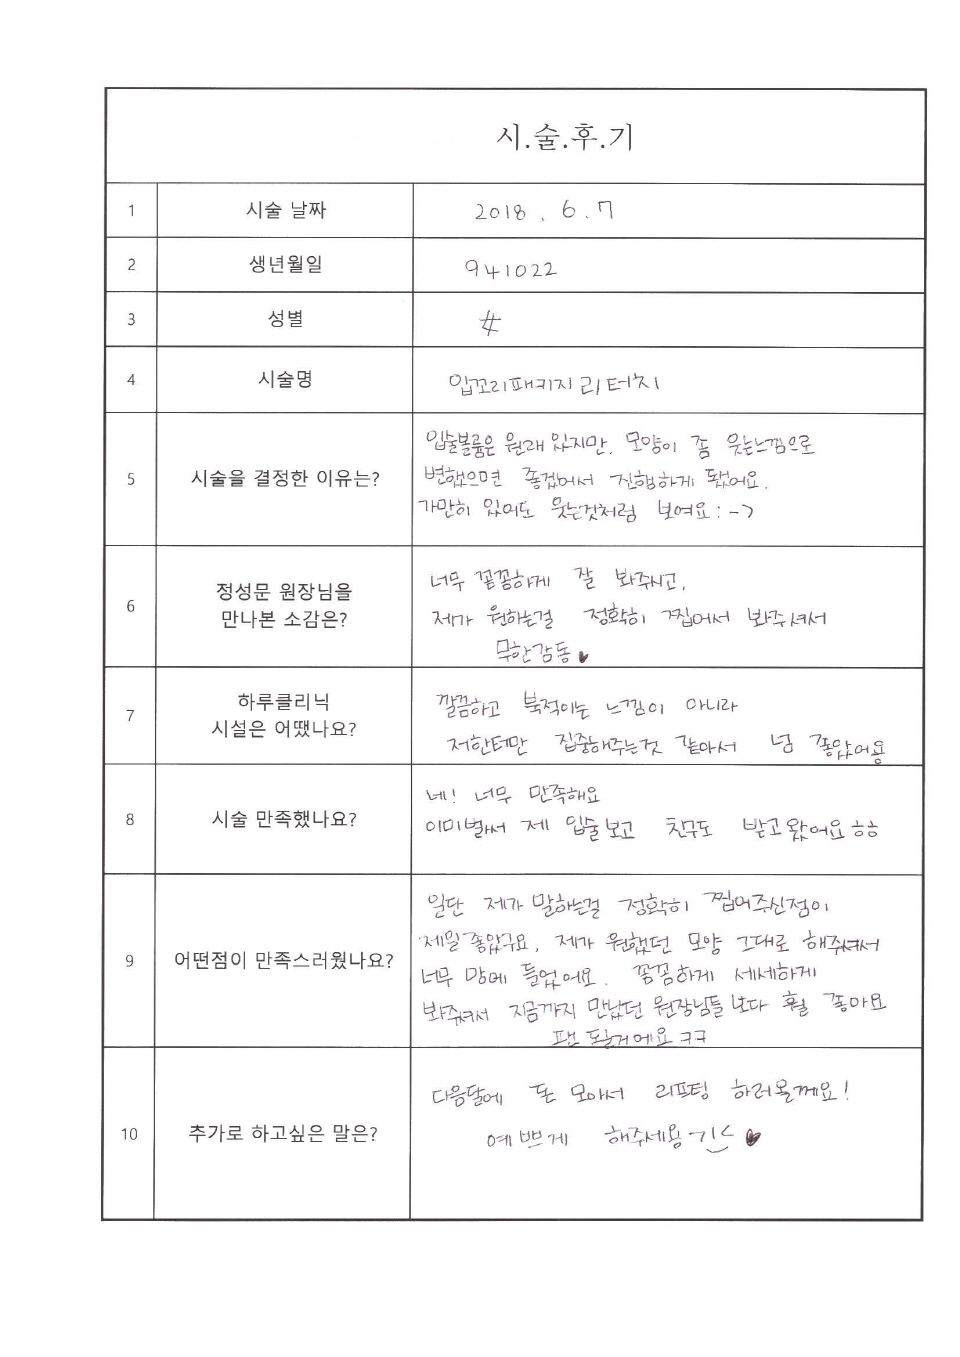 시.술.후.기
1 시술 날짜 2018. 6. 7
2 생년월일 941022
3 성별 女
4 시술명 입꼬리패키지 리터치
5 시술을 결정한 이유는?
입술볼륨은 원래 있지만. 모양이 좀 웃는느낌으로
변했으면 좋겠어서 진행하게 됐어요.
가만히 있어도 웃는것처럼 보여요:->
6 정성문 원장님을
만나본 소감은?
너무 꼼꼼하게 잘 봐주시고,
제가 원하는걸 정확히 찝어서 봐주셔서
무한감동♥
7 하루클리닉
시설은 어땠나요?
깔끔하고 북적이는 느낌이 아니라
저한테만 집중해주는것 같아서 넘 좋았어용
8 시술 만족했나요?
네! 너무 만족해요
이미벌써 제 입술보고 친구도 받고왔어요ㅎㅎ
9 어떤점이 만족스러웠나요?
일단 제가 말하는걸 정확히 찝어주신점이
제일 좋았구요, 제가 원했던 모양 그대로 해주셔서
너무 맘에 들었어요. 꼼꼼하게 세세하게
봐주셔서 지금까지 만났던 원장님들보다 훨 좋아요
팬 될거에요 ㅋㅋ
10 추가로 하고싶은 말은?
다음달에 돈 모아서 리프팅 하러올께요!
예쁘게 해주세용 ♥